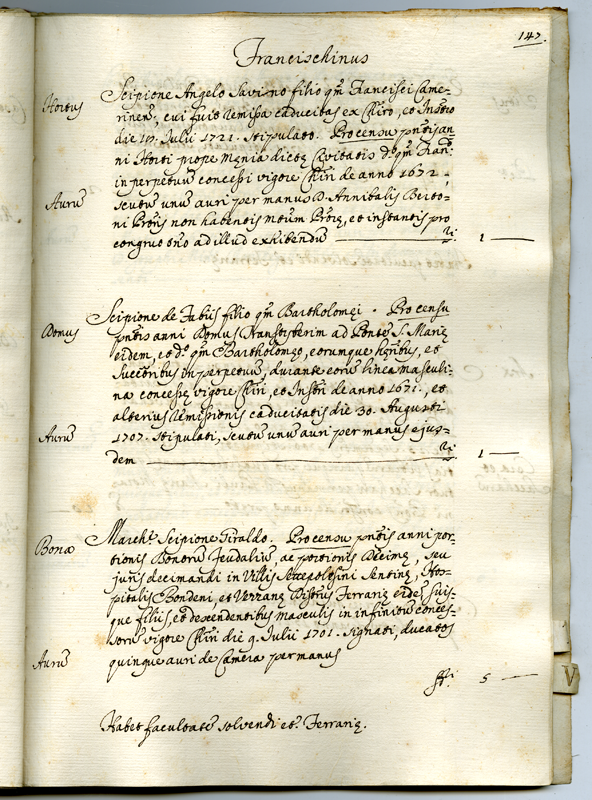 147.
Francischinus
Hortus
Scipione Angelo Savino filio qm Francisci Came-
rinen, cui fuit remissa caducitas ex Chiro, et Instro
die 17. Julii 1721. stipulato. Pro censu pntis an-
ni Horti prope Mænia dictæ Civitatis do. qm Fran:
in perpetuũ concessi vigore Chiri de anno 1672.,
Aurũ
scutũ unũ auri per manus D. Annibalis Berto-
ni Proris non habentis mtũm Proræ, et instantis pro
congruo ono ad illud exhibendũ 1
Domus
Scipione de Fabiis filio qm Bartholomęi. Pro censu
pntis anni Domus Transtyberim ad Pontẽ S. Marię
eidem, et do. qm Bartholomęo, eorumque hęribus, et
Succoribus in perpetuũ, durante eorũ linea masculi-
na concessę vigore Chiri, et Instri de anno 1671., et
alterius remissionis caducitatis die 30. Augusti
Aurũ
1707. stipulati, scutũ unũ auri per manus ejus-
dem 1
Bona
March: Scipione Giraldo. Pro censu pntis anni por-
tionis Bonorũ feudaliũ, ac portionis Decimę, seu
juris decimandi in Villis Settepolesini Sentinę, Hos-
pitalis Bondeni, et Verzanę Distus Ferrarię eidẽ, suis-
que filiis, et descendentibus masculis in infinitũ conces-
sorũ vigore Chiri die 9. Julii 1701. signati, ducatos
Aurũ
quinque auri de Camera per manus
5
Habet facultatẽ solvendi et. Ferrarię.
V